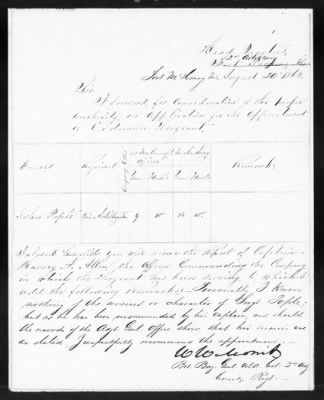 Head Quarters,
2nd Artillery
Fort McHenry Md. August 20 186
Sir
I forward for consideration of the proper
authority, an application for the appointment
of Ordnance Sergeant.
Names Regiment Company Remarks
Years Months Years Months
2nd Artillery 9 10 10
Enclosed herewith you will receive the report of Captain
Harvey A. Allen, the officer Commanding the Company
in which the Sergeant has been serving to which I
add the following remarks: Personally I know
nothing of the services or character of Sergt Pople;
but as he has been recommended by his Captain, and should
the records of the Adjt Genl Office show that his services are
as stated I respectfully recommend the appointment.
Bvt Brig. Genl U.S.A. Col. 2nd Arty
Comdg Regt.